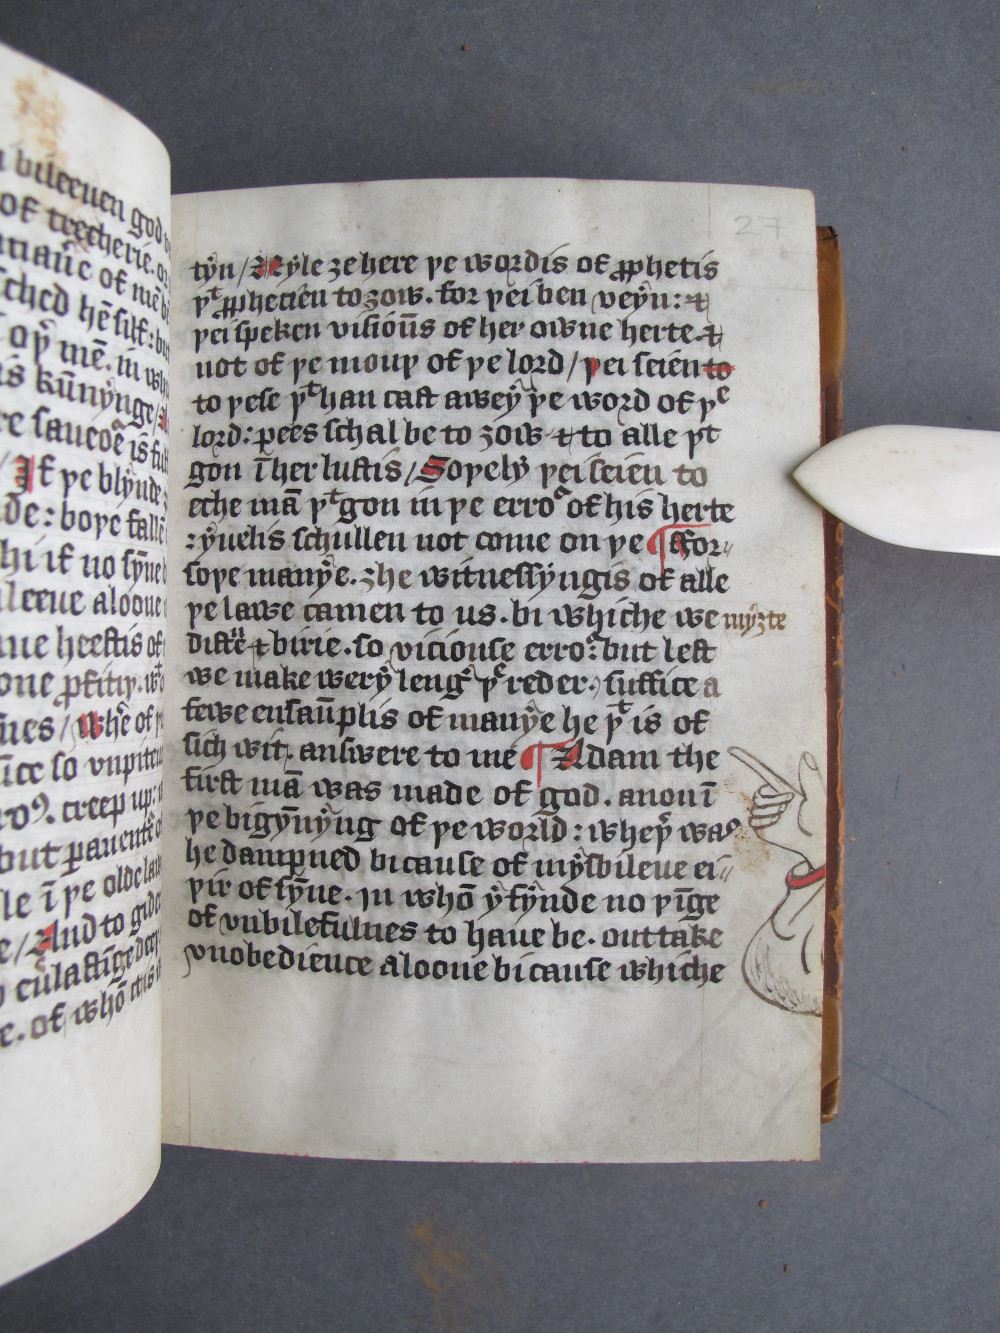 bileeuen god
of trecherie. or
of me
sched hēsilf: but
oþ mē. in wh
is kūnynge/
re saueoē is ful
/ If þe blynde
de: boþe fallē
hi if no synne
ileeue aloone
ne heestis of
one ꝑfitiþ. wt
ues/ whe of
ice so vnpiteu
creep up:
but ꝑauentͬe
le ī þe olde law
e/ And to gide
culastīge deep
e. of whō
27
tyn/ Nyle ȝe here þe wordis of ꝓphetis
þt ꝓphecien to ȝow. for þei ben veyn: ⁊
þei speken visiouns of her owne herte. ⁊
not of þe mouþ of þe lord/ þei seien to
to þese þt han cast awey þe word of þe
lord: pees schal be to ȝow ⁊ to alle þt
gon ī her lustis/ Soþely þei seien to
eche mā þt gon in þe erroͬ of his herte
: yuelis schullen not come on ȝe ¶ ffor〃
soþe manye. ȝhe witnessyngis of alle
þe lawe camen to us. bi whiche we myȝte
distrie ⁊ birie. so viciouse erroͬ: but lest
we make wery lengͬ þe reder. suffice a
fewe ensaūplis of manye he þt is of
sich wit: answere to me ¶ Adam the
first mā was made of god. anon ī
þe bigynnyng of þe world: wheþͬ was
he dampned bi cause of mysbileue ei〃
þir of synne. In whō y fynde no þīge
of vnbilefulnes to haue be. out take
vnobedience aloone bi cause whiche